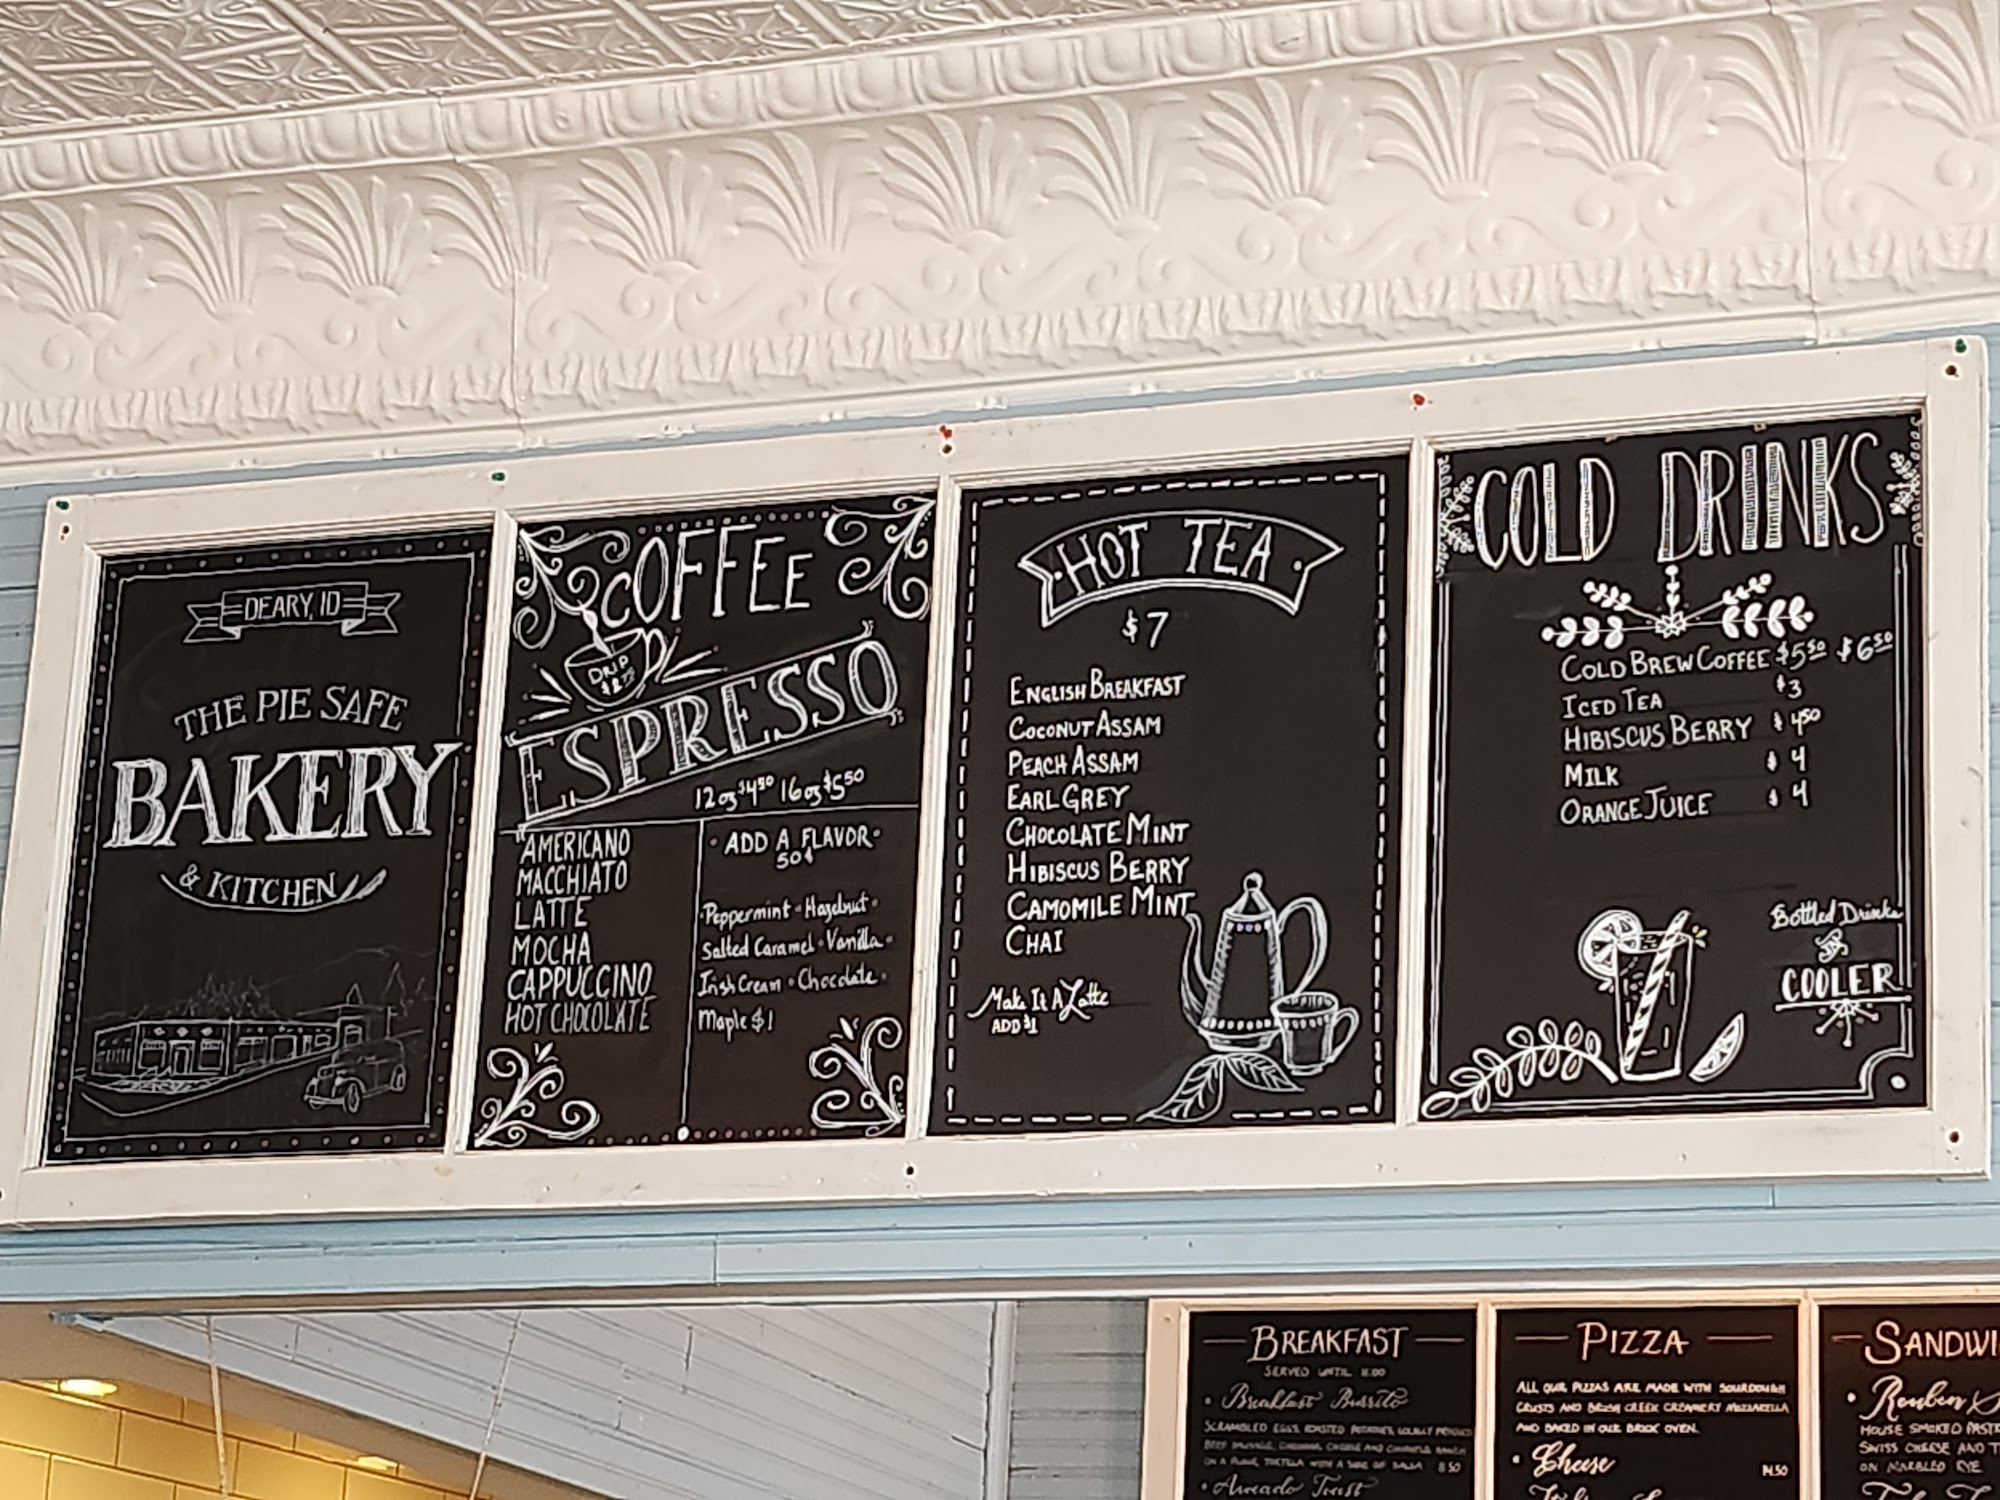 DEARY, ID
THE PIE SAFE
BAKERY
& KITCHEN
COFFEE
DRIP
ESPRESSO
12 oz $4.50 16 oz $5.50
AMERICANO
MACCHIATO
LATTE
MOCHA
CAPPUCCINO
HOT CHOCOLATE
• ADD A FLAVOR •
50¢
• Peppermint • Hazelnut •
Salted Caramel • Vanilla •
Irish Cream • Chocolate •
Maple $1
HOT TEA
$7
ENGLISH BREAKFAST
COCONUT ASSAM
PEACH ASSAM
EARL GREY
CHOCOLATE MINT
HIBISCUS BERRY
CAMOMILE MINT
CHAI
Make It A Latte
ADD $1
COLD DRINKS
COLD BREW COFFEE $5.50 $6.50
ICED TEA $3
HIBISCUS BERRY $4.50
MILK $4
ORANGE JUICE $4
Bottled Drinks
IN
COOLER
BREAKFAST
SERVED UNTIL 11:00
• Breakfast Burrito
SCRAMBLED EGGS, ROASTED POTATOES, LOCALLY
BEEF SAUSAGE, CHEDDAR CHEESE AND CHIPOTLE RANCH
ON A FLOUR TORTILLA WITH A SIDE OF SALSA 8.50
• Avocado Toast
PIZZA
ALL OUR PIZZAS ARE MADE WITH SOURDOUGH
CRUSTS AND BRUSH CREEK CREAMERY MOZZARELLA
AND BAKED IN OUR BRICK OVEN.
• Cheese 14.50
SANDWI
• Reuben S
HOUSE SMOKED PAST
SWISS CHEESE AND T
ON MARBLED RYE